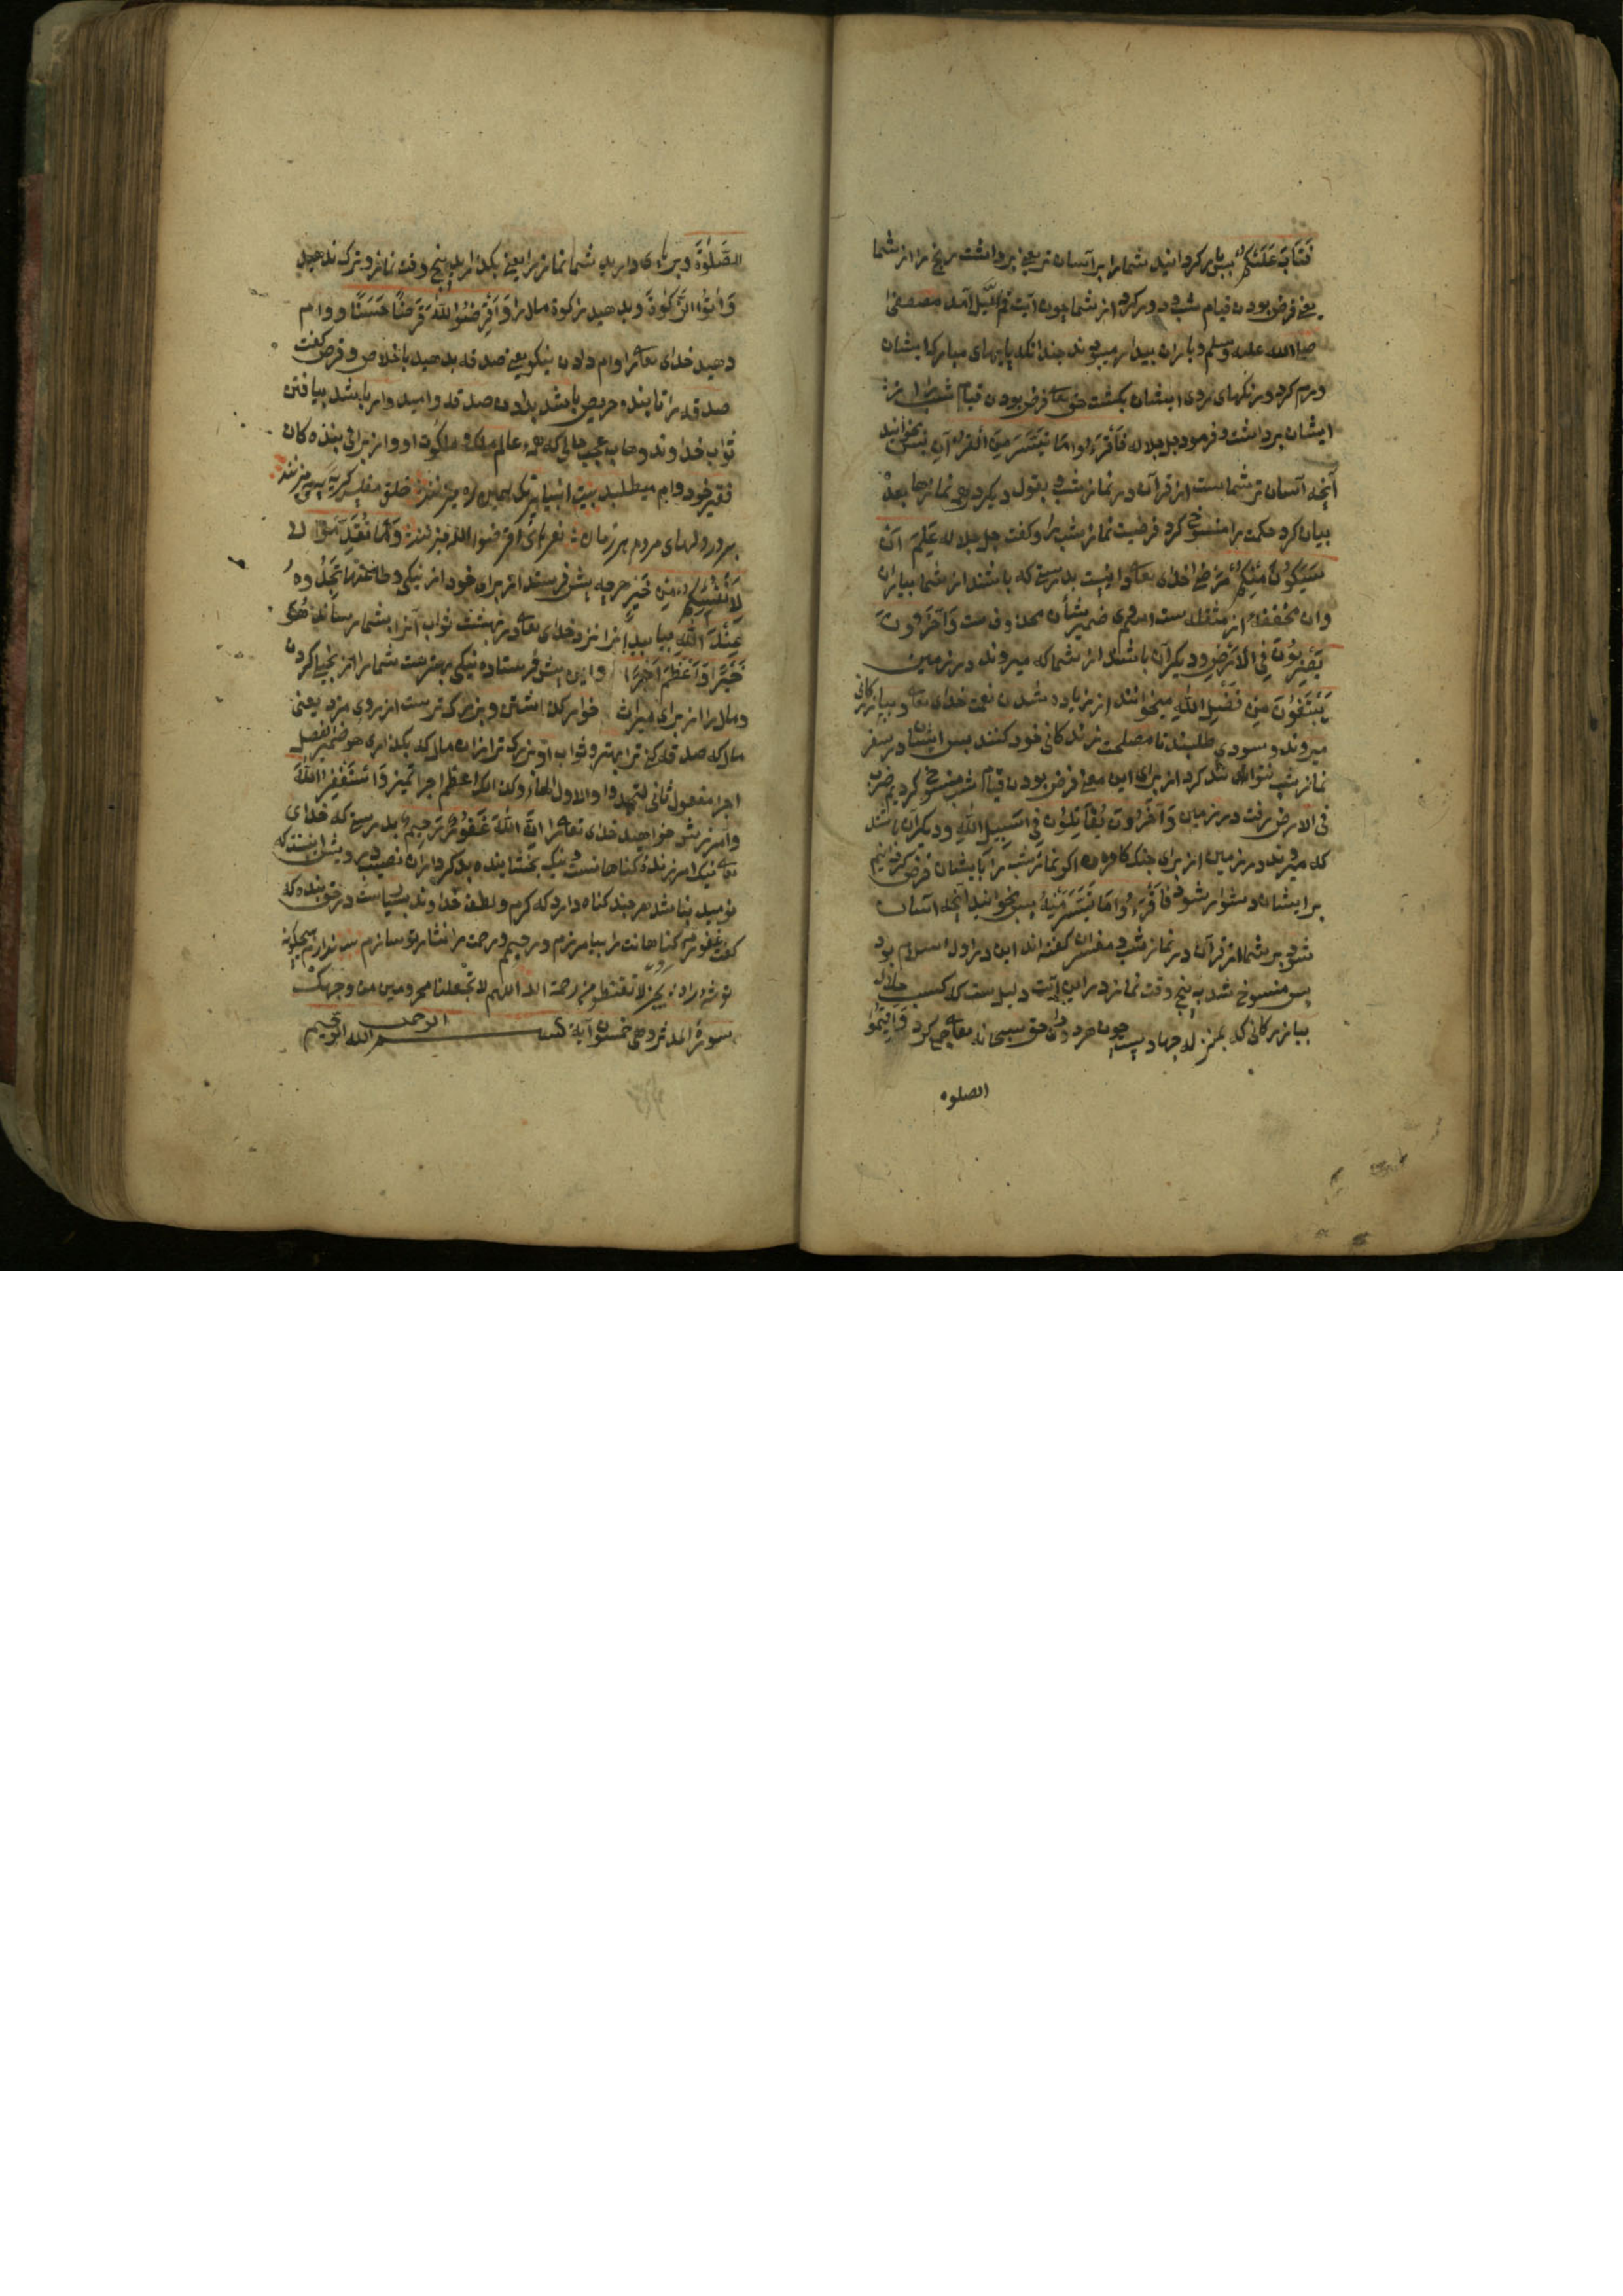 فَتَابَ عَلَيْكُمْ پس باز کردانید شما را بر آسان تر یعنی برداشت رنج را از شما
یعنی فرض بودن قیام شب دور کرد از شما چون آیت قم اللیل آمد مصطفی
صلی الله علیه وسلم و یاران بیدار میبودند چندانکه پایهای مبارک ایشان
ورم کرد و رنکهای روی ایشان بکشت حق تعا فرض بودن قیام شب را از
ایشان برداشت و فرمود جل جلاله فَاقْرَءُوا مَا تَيَسَّرَ مِنَ الْقُرْآنِ پس بخوانید
آنچه آسان تر شماست از قرآن در نماز شب و بقول دیکر در همی نمازها بعده
بیان کرد حکمت را منسوخ کرد فرضیت نماز شب را و کفت جل جلاله عَلِمَ أَنْ
سَيَكُونُ مِنْكُمْ مَرْضَى خدای تعا دانست بدرستی که باشند از شما بیماران
وان مخففه از مثقله است ضمیر شأن محذوف ست وَآخَرُونَ
يَضْرِبُونَ فِي الْأَرْضِ و دیکرآن باشند از شما که میروند در زمین
يَبْتَغُونَ مِنْ فَضْلِ اللَّهِ میخواهند از زیاده شدن نعمت خدای تعا و ببازرکانی
میروند و سودی طلبند تا مصلحت زندکانی خود کنند پس ایشان در سفر
نماز شب نتوانند کرد از برای این معنی فرض بودن قیام شب منسوخ کردیم ضرب
فی الارض رفت در زمین وَآخَرُونَ يُقَاتِلُونَ فِي سَبِيلِ اللَّهِ و دیکران باشند
که میروند در زمین از برای جنک کافران اکر نماز شب را بایشان فرض کردانیم
بر ایشان دشوار شود فَاقْرَءُوا مَا تَيَسَّرَ مِنْهُ پس بخوانید آنچه آسان
شود بر شما از قرآن در نماز شب و مفسران کفته اند این در اول اسلام بود
پس منسوخ شد به پنج وقت نماز در این آیت دلیل ست که کسب حلال
ببازرکانی که بمنزله جهاد پست چون هر دو را حق سبحانه تعا جمع کرد فَأَقِيمُوا
الصلوه
الصَّلٰوةَ و بر پای دارید شما نماز را یعنی بکذارید پنج وقت نماز و ترک ندهید
وَآتُوا الزَّكٰوةَ و بدهید زکوة مال را وَأَقْرِضُوا اللَّهَ قَرْضًا حَسَنًا و وام
دهید خدای تعا را وام دادن نیکو یعنی صدقه بدهید باخلاص و قرض کفت
صدقه را تا بنده حریص باشد بدادن صدقه و امیدوار باشد بیافتن
ثواب خداوند وهاب عجب حالی که همه عالم ملک و ملکوت او و از برای بنده کان
فقیر خود وام میطلبد بیت
بر در دلهای مردم هر زمان نعرهٔ اقرضوا الله میزنند وَمَا تُقَدِّمُوا
لِأَنْفُسِكُمْ مِنْ خَيْرٍ هرچه پیش فرستند از برای خود از نیکی و طاعتها تَجِدُوهُ
عِنْدَ اللَّهِ بیابید آنرا نزد خدای تعا در بهشت ثواب آنرا بشما رسانند هُوَ
خَيْرًا وَأَعْظَمَ أَجْرًا و این پیش فرستاده نیکی بهترست شما را از بخیلی کردن
و مال را از برای میراث خوار کذاشتن و بزرک ترست از روی مزد یعنی
مال که صدقه کنی ترا بهتر و ثواب او بزرک تر از آن مال که بکذاری هو ضمیر فصل
اجرا مفعول ثانی لتجدوا والاول الهاء وکذلک اعظم اجرا تمیز وَاسْتَغْفِرُوا اللَّهَ
و آمرزش خواهید خدای تعا را إِنَّ اللَّهَ غَفُورٌ رَحِيمٌ بدرستی که خدای
تعا نیک امرزندهٔ کناهانست و نیک بخشاینده بندکان
نومید نباشد هرچند کناه دارد که کرم و لطف خداوند بسیاست در حق بنده که
کفت غفورم کناهانت را بیامرزم و رحیم و رحمت را نثار تو سازم
لا تقنطوا من رحمة الله اللهم لا تجعلنا محرومین من وجهک
سورة المدثر وهی خمسون آیة بســـــم الله الرحمن الرحیم